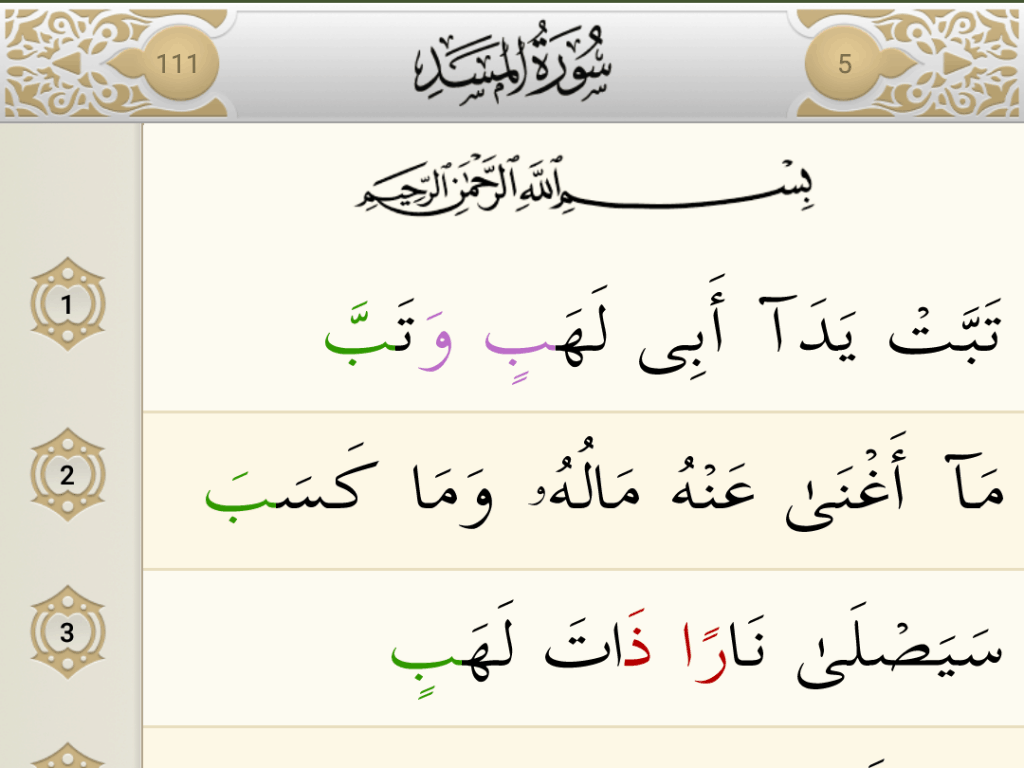 111 سُورَةُ المَسَدِ 5
بِسْمِ اللَّهِ الرَّحْمَٰنِ الرَّحِيمِ
1 تَبَّتْ يَدَآ أَبِى لَهَبٍ وَتَبَّ
2 مَآ أَغْنَىٰ عَنْهُ مَالُهُۥ وَمَا كَسَبَ
3 سَيَصْلَىٰ نَارًا ذَاتَ لَهَبٍ